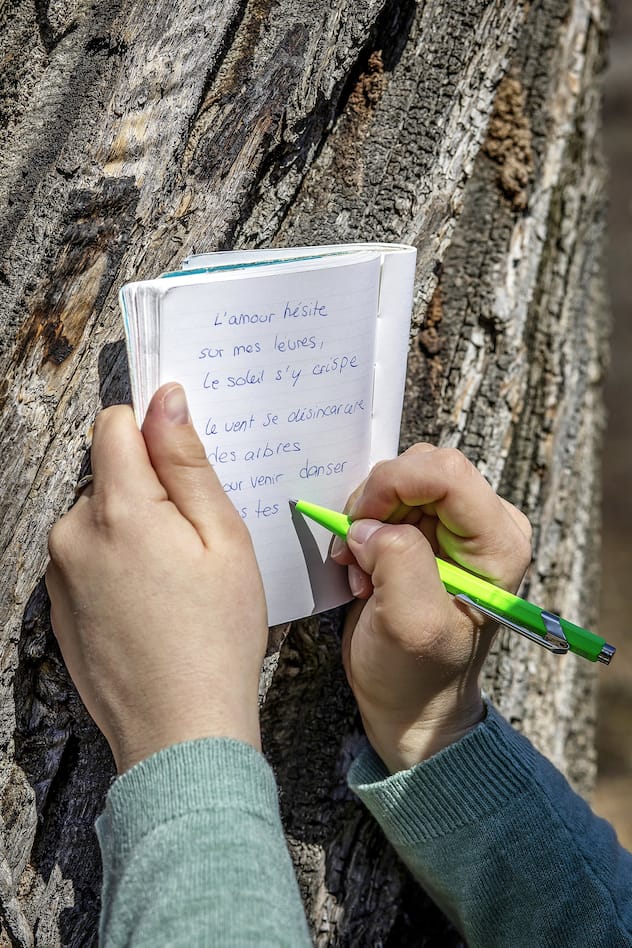 L'amour hésite
sur mes levres,
le soleil s'y crispe
le vent se désincarcère
des arbres
our venir danser
s tes